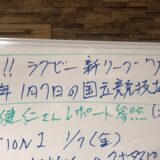 !! ラグビー新リーグ
年1月7日の国立競技
健仁さんレポート参照
TION1 1/7(金)